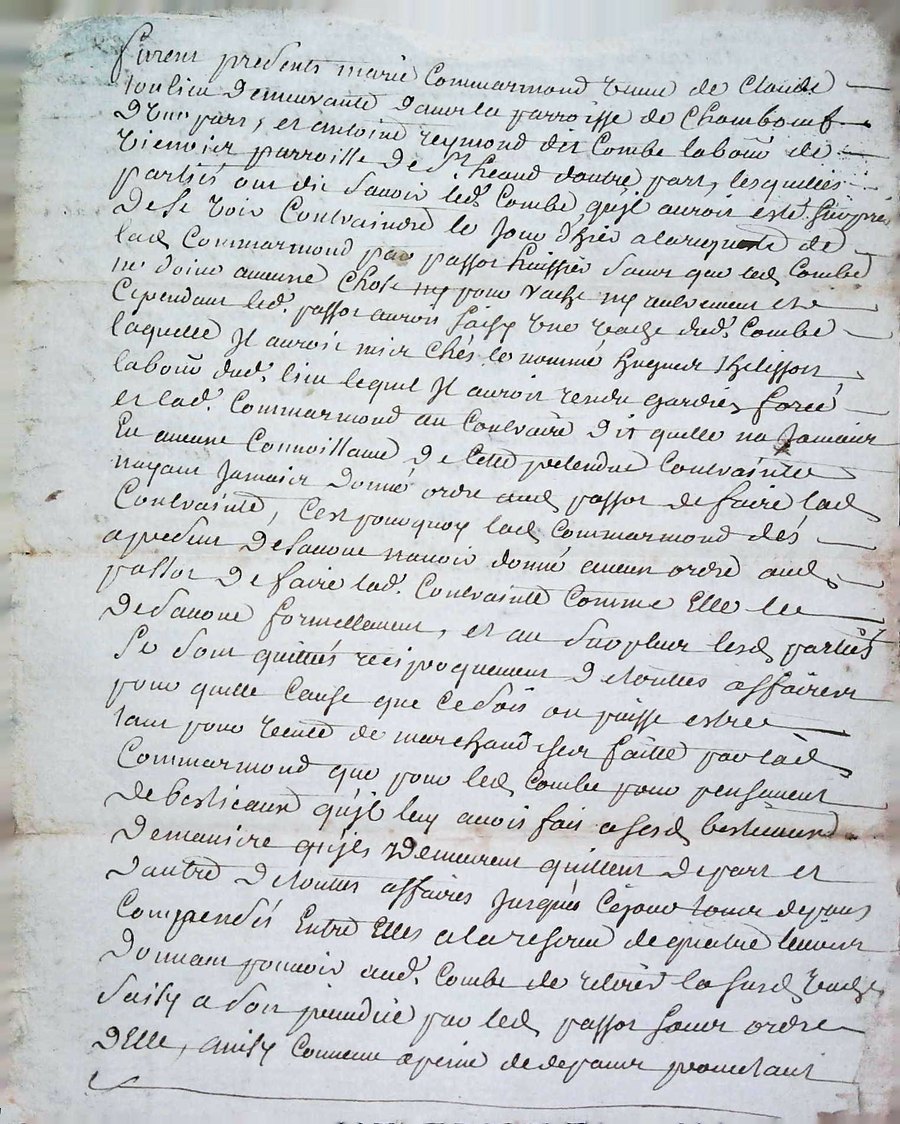 furent presents marie Commarmond veuve de Claude
toulieu demeurante dans la parroisse de Chambœuf
d'une part, et antoine reymond dit Combe labour de
parroisse de St. heand dautre part, lesquelles
parties ont dit savoir led. Combe qu'jl auroit esté surpris
de se voir Contraindre le jour d'hier a la requeste de
lad Commarmond par passot huissier sans que led Combe
ne doive aucune Chose ny pour vache ny autrement et
Cependant led. passot auroit saisy une vache dud. Combe
laquelle jl auroit mis chés le nommé hugues thelisson
labour dud. lieu lequel jl auroit rendu gardien forcé
et lad. Commarmond au Contraire dit quelle na jamais
Eu aucune Connoissance de Cette pretendue Contrainte
nayant jamais donné ordre aud passot de faire lad
Contrainte, C'est pourquoy lad Commarmond dés
apresent desavoue navoir donné aucun ordre aud
passot de faire lad. Contrainte Comme Elle le
desavoue formellement, et au surplus lesd parties
se sont quittés reciproquement de touttes affaires
pour quelle Cause que Ce soit ou puisse estre
tant pour vente de marchandises faitte par lad
Commarmond que pour led Combe pour pensement
de bestiaux qu'jl luy avoit fait a sesd bestiaux
de maniere qu'jls demeurent quittent de part et
dautre de touttes affaires jusques Cejourd'huy
Compensés Entre Elles a la reserve de quatre
donnant pouvoir aud. Combe de retirer la susd vache
saisy a son prejudice par led passot sans ordre
dElle, ainsy Convenu a peine de depans promettant